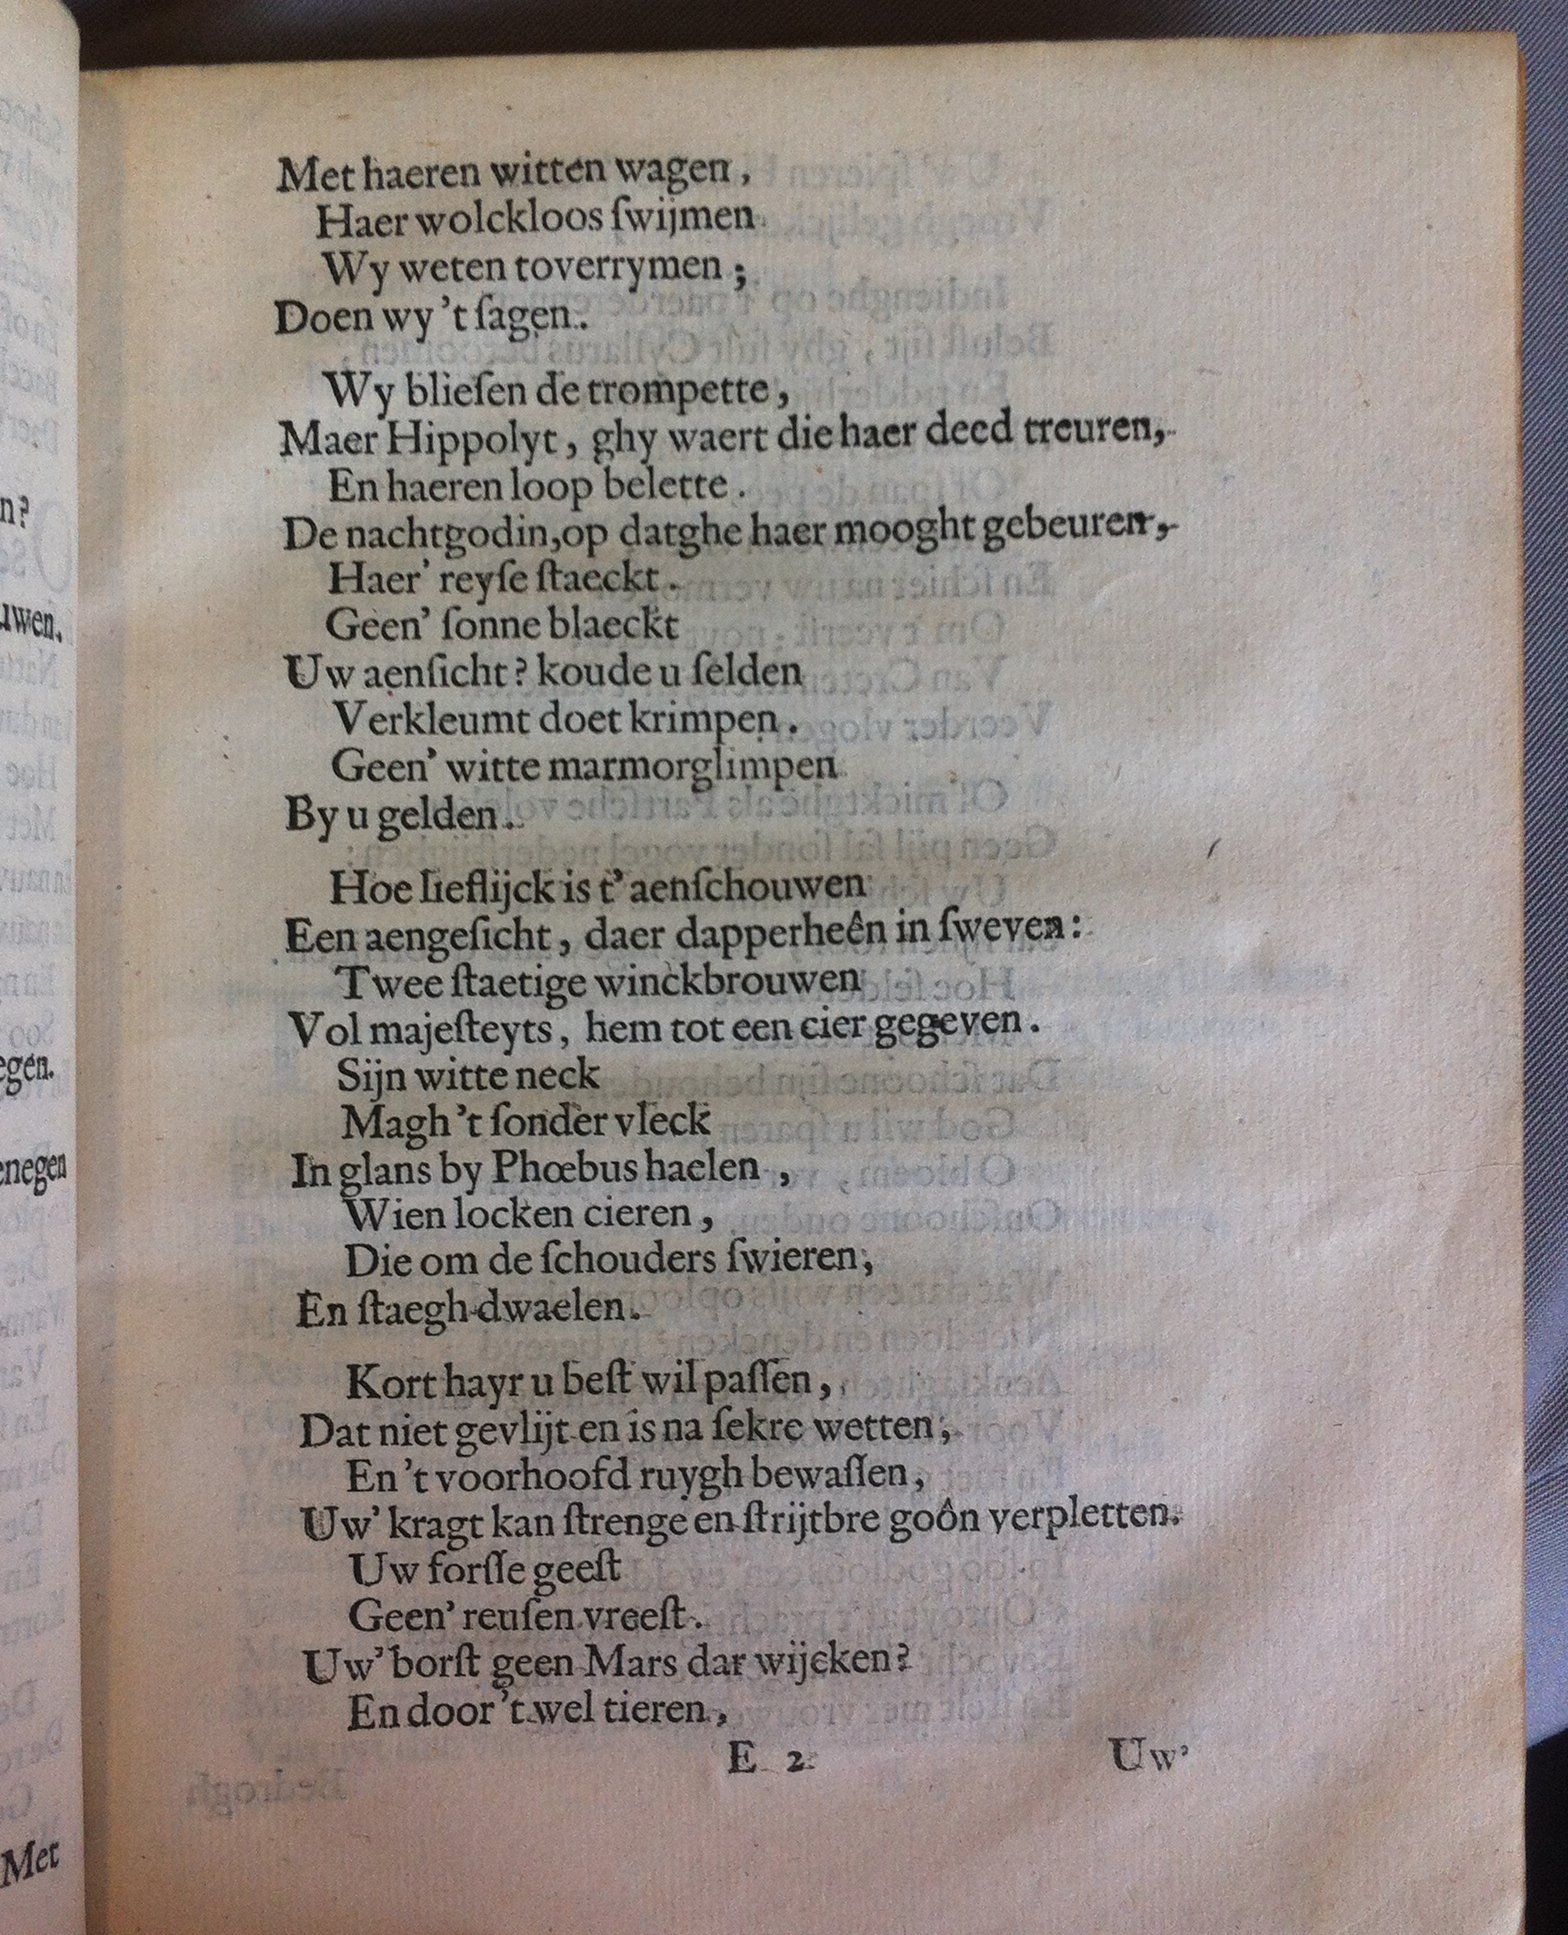 Met haeren witten wagen,
Haer wolckloos ſwijmen
Wy weten toverrymen;
Doen wy 't ſagen.
Wy blieſen de trompette,
Maer Hippolyt, ghy waert die haer deed treuren,
En haeren loop belette.
De nachtgodin, op datghe haer mooght gebeuren,
Haer' reyſe ſtaeckt.
Geen' ſonne blaeckt
Uw aenſicht? koude u ſelden
Verkleumt doet krimpen.
Geen' witte marmorglimpen
By u gelden.
Hoe lieflijck is t' aenſchouwen
Een aengeſicht, daer dapperheên in ſweven:
Twee ſtaetige winckbrouwen
Vol majeſteyts, hem tot een cier gegeven.
Sijn witte neck
Magh 't ſonder vleck
In glans by Phœbus haelen,
Wien locken cieren,
Die om de ſchouders ſwieren,
En ſtaegh dwaelen.
Kort hayr u beſt wil paſſen,
Dat niet gevlijt en is na ſekre wetten,
En 't voorhoofd ruygh bewaſſen,
Uw' kragt kan ſtrenge en ſtrijtbre goôn verpletten.
Uw forſſe geeſt
Geen' reuſen vreeſt.
Uw' borſt geen Mars dar wijcken?
En door 't wel tieren,
E 2 Uw'
n?
uwen.
egen.
enegen
Met